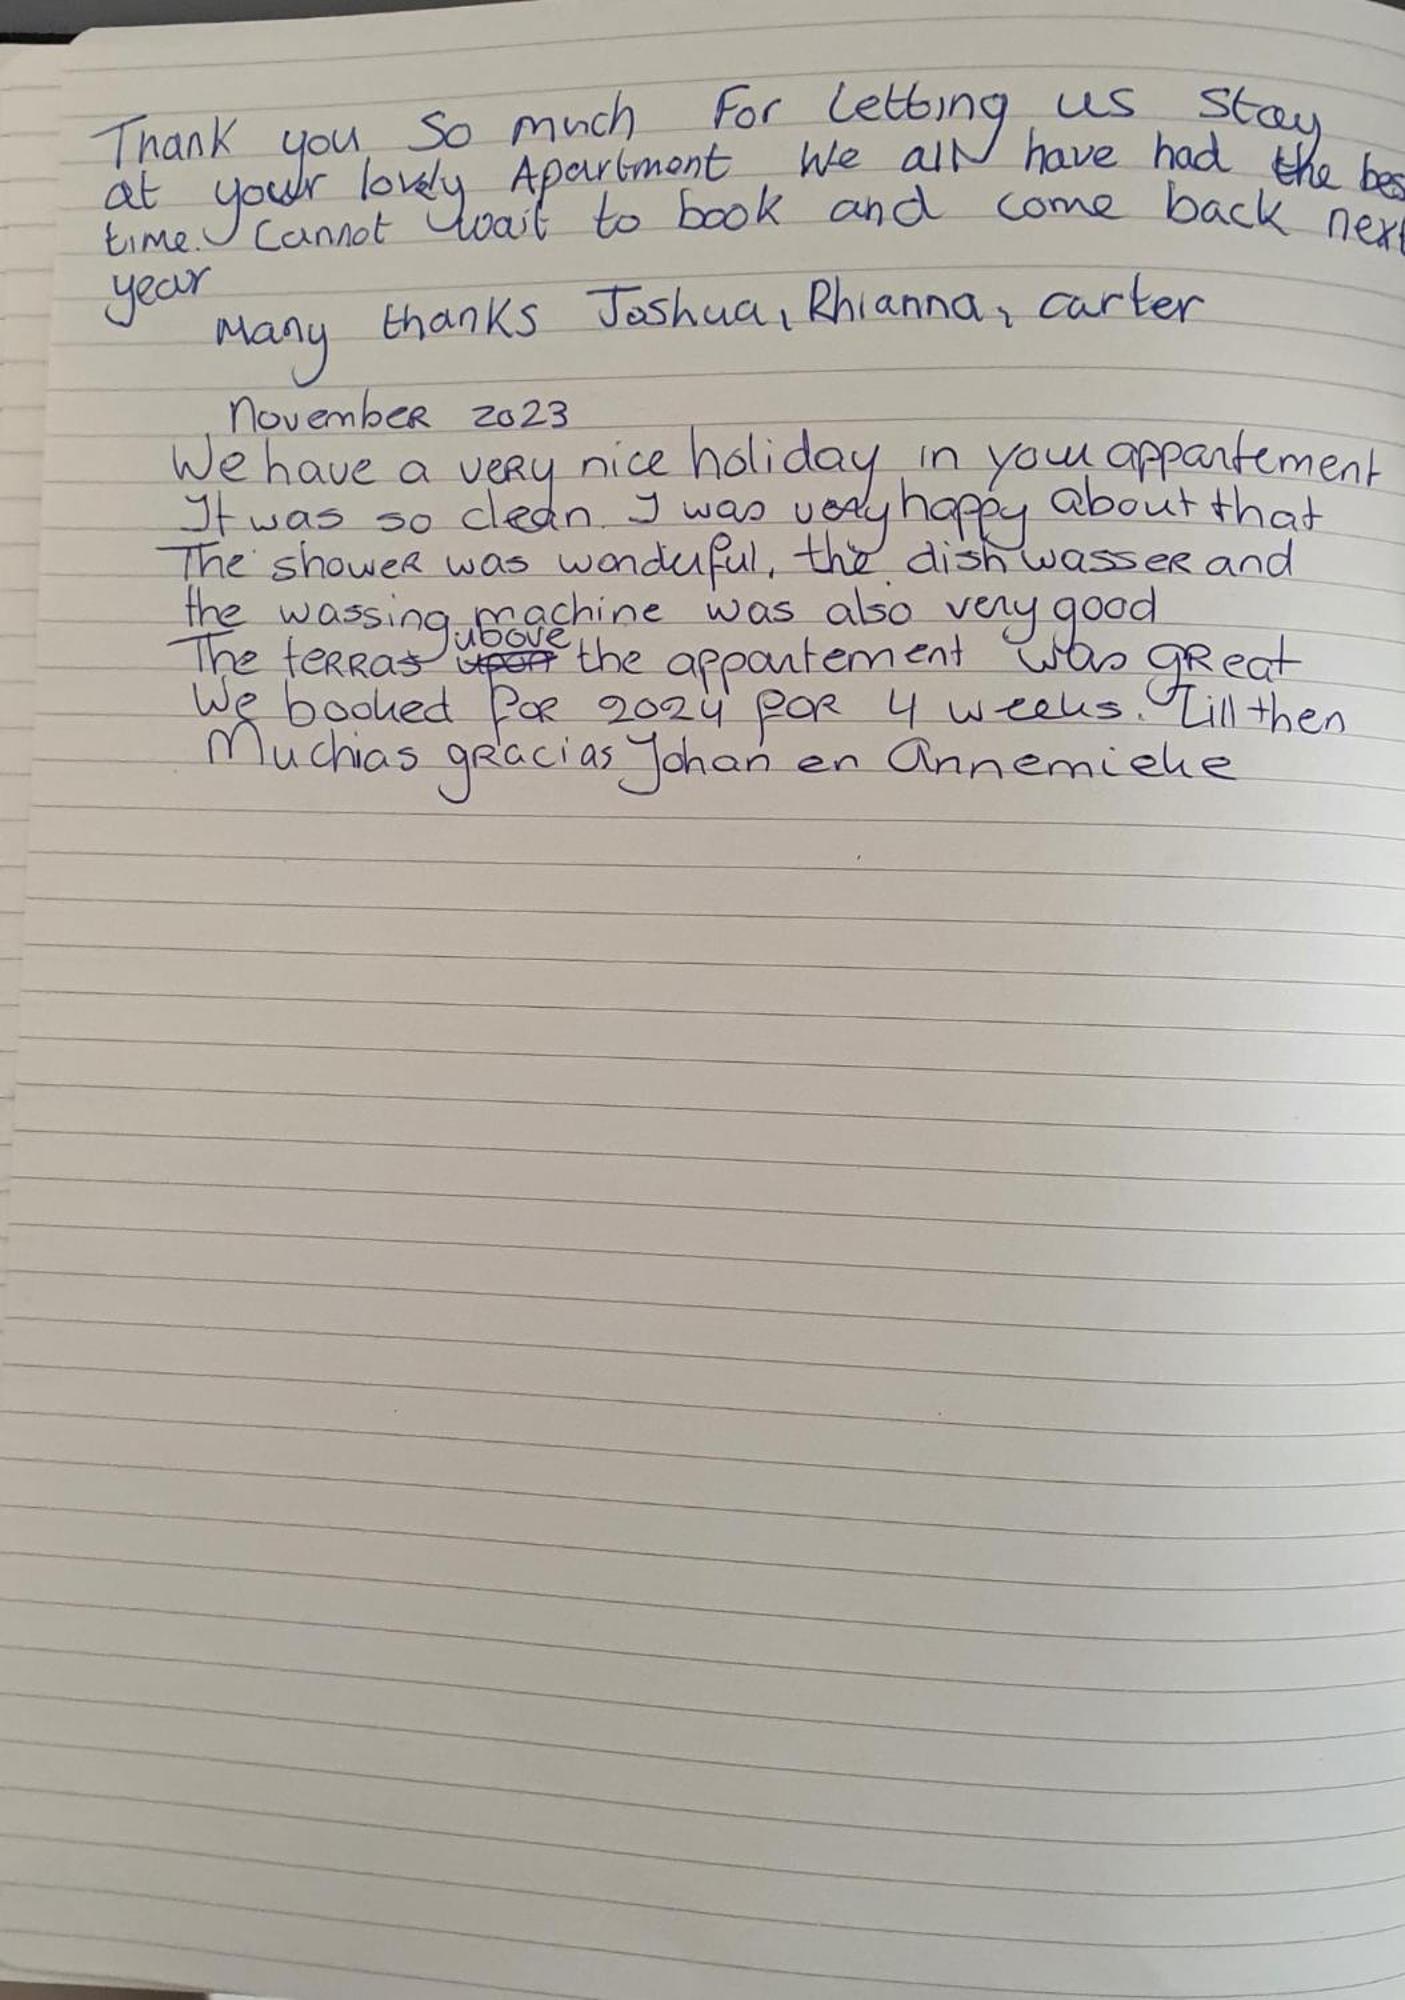 Thank you So much For letting us Stay
at your lovely Apartment We all have had the bes
time. Cannot wait to book and come back next
year
Many thanks Joshua, Rhianna, carter
november 2023
We have a very nice holiday in your appartement
It was so clean. I was very happy about that
The shower was wonderful, the dishwasser and
the wassing machine was also very good
above
The terras upon the appartement was great
We booked for 2024 for 4 weeks. Till then
Muchias gracias Johan en Annemieke